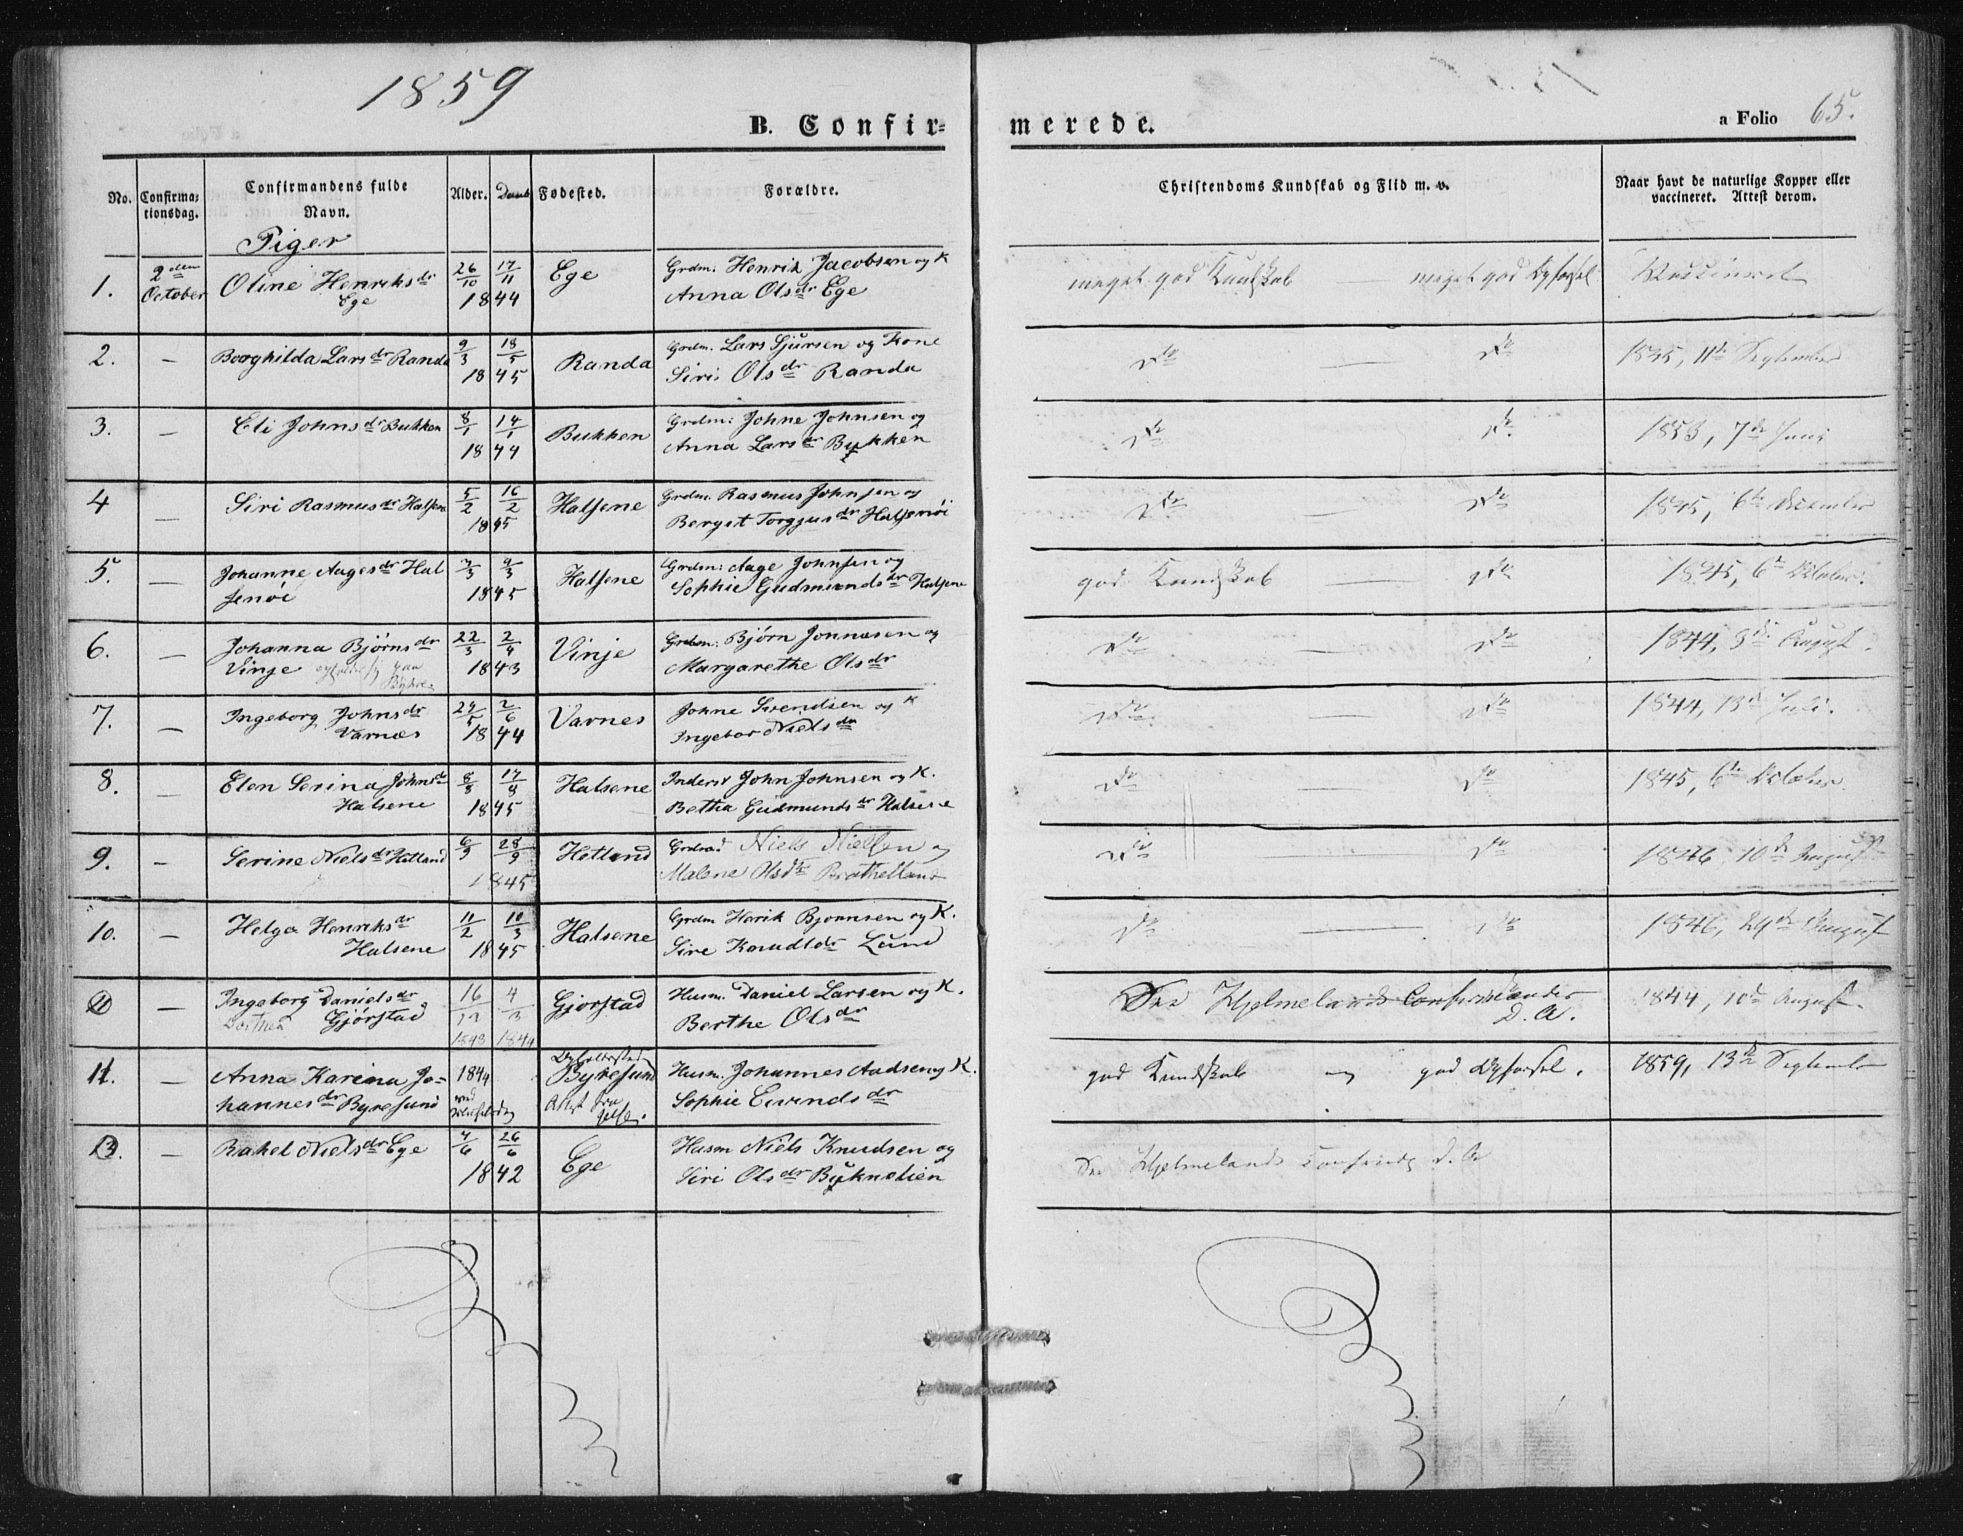 1859
B. Confirmerede.
a Folio 65.
No. Confirmationsdag. Confirmandens fulde Navn. Alder. Daab Fødested. Forældre. Christendoms Kundskab og Flid m. v. Naar havt de naturlige Kopper eller vaccineret. Attest derom.
Piger
1. 2den October Oline Henriksdr Ege 26/10 17/11 1844 Ege Grdm. Henrik Jacobsen og K Anna Olsdr Ege meget god Kundskab — meget god Opførsel Vaccineret
2. — Borghilda Larsdr Randa 9/3 18/5 1845 Randa Grdm. Lars Sjursen og Kone Siri Olsdr Randa do — do 1845, 11te September
3. — Eli Johnsdr Bukken 8/1 14/1 1844 Bukken Grdm: Johne Johnsen og Anna Larsdr Bukken do do 1853, 7de Juni
4 — Siri Rasmusdr Halsene 5/2 16/2 1845 Halsene Grdm. Rasmus Johnsen og Torgjusdr Halsenøi do — do 1845, 6te
5. — Johanne Aagesdr Halsenøi 9/3 1845 Halsene Grdm: Aage Johnsen og Sophie Gudmundsdr Halsene god Kundskab — do 1845, 6te October.
6. — Johanna Bjørnsdr Vinje 22/3 2/4 1843 Vinje Grdm: Bjørn Jonnasen og Margarethe Olsdr do — do 1844, August.
7. — Ingeborg Johnsdr Varnes 2/6 1844 Varnes Johne Svendsen og K Ingebor Nielsdr do — do 1844, 13de Juli.
8. — Elen Serina Johnsdr Halsene 1845 Halsene Inderst John Johnsen og K. Betha Gudmundsdr Halsene do — do 1845, 6te October
9. — Serine Nielsdr Hetland 1845 Hetland Niels Nielsen og Malene Olsdr do — do 1846 10de August
10. — Helga Henriksdr Halsene 11/2 10/3 1845 Halsene Grdm Henrik Bjornsen og K. Sire Knudtdr Lund do — do 1846, 29de August
— Ingeborg Danielsdr Gjørstad 16/12 1843 1844 Gjorstad Husm. Daniel Larsen og K. Berthe Olsdr See Hjelmelands D. A. 1844, 10de August
11. — Anna Karina Johannesdr Byresund 1844 Byresund Husm. Johannes Aadsen og K. Sophie Eivindsdr god Kundskab og god Opførsel. 1859, 13de September
13. — Rakel Nielsdr Ege 4/6 26/6 1842 Ege Husm Niels Knudsen og Siri Olsdr See Hjelmelands d. A